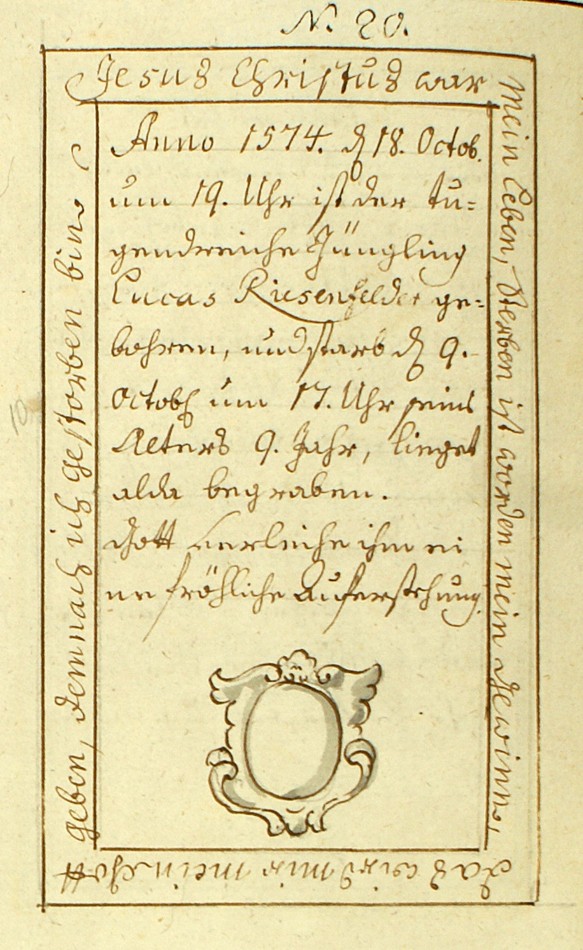 N. 20.
Jesus Christus war
mein Leben, Sterben ist worden mein Gewinn,
das wird mir mein Gott
geben, demnach ich gestorben bin.
Anno 1574. d 18. Octob.
um 19. Uhr ist der tu=
gendreiche Jüngling
Lucas Riesenfelder ge=
bohren, und starb d 9.
Octob um 17. Uhr seins
Alters 9. Jahr, lieget
alda begraben.
Gott verleihe ihm ei
ne fröhliche Auferstehung.
10